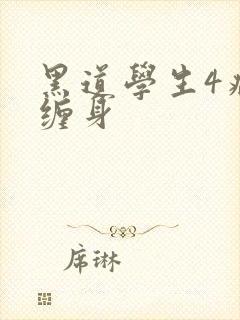 黑道學生4
缠身
席琳